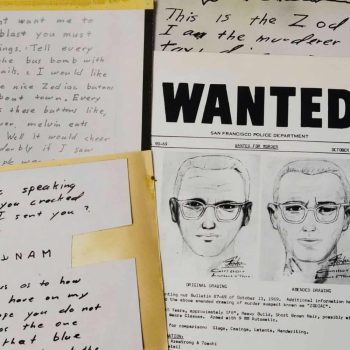 t want me to
blast you must
ings. Tell every
he bus bomb with
ails. I would like
e nice Zodiac butons
bout town. Every
s these buttons like,
er, melvin eats
Well it would cheer
derbly if I saw
This is the Zod
I am the murderer
speaking
you cracked
I sent you?
NAM
us as to how
have on my
pe you do not
as the one
that blue
WANTED
SAN FRANCISCO POLICE DEPARTMENT
90-69 WANTED FOR MURDER OCTOBER
ORIGINAL DRAWING AMENDED DRAWING
ting our Bulletin 87-69 of October 13, 1969. Additional information ha
the above amended drawing of murder suspect known as "ZODIAC".
Years, approximately 5'8", Heavy Build, Short Brown Hair, possibly w
Wears Glasses. Armed with 9 MM Automatic.
for comparison: Slugs, Casings, Latents, Handwriting.
Armstrong & Toschi